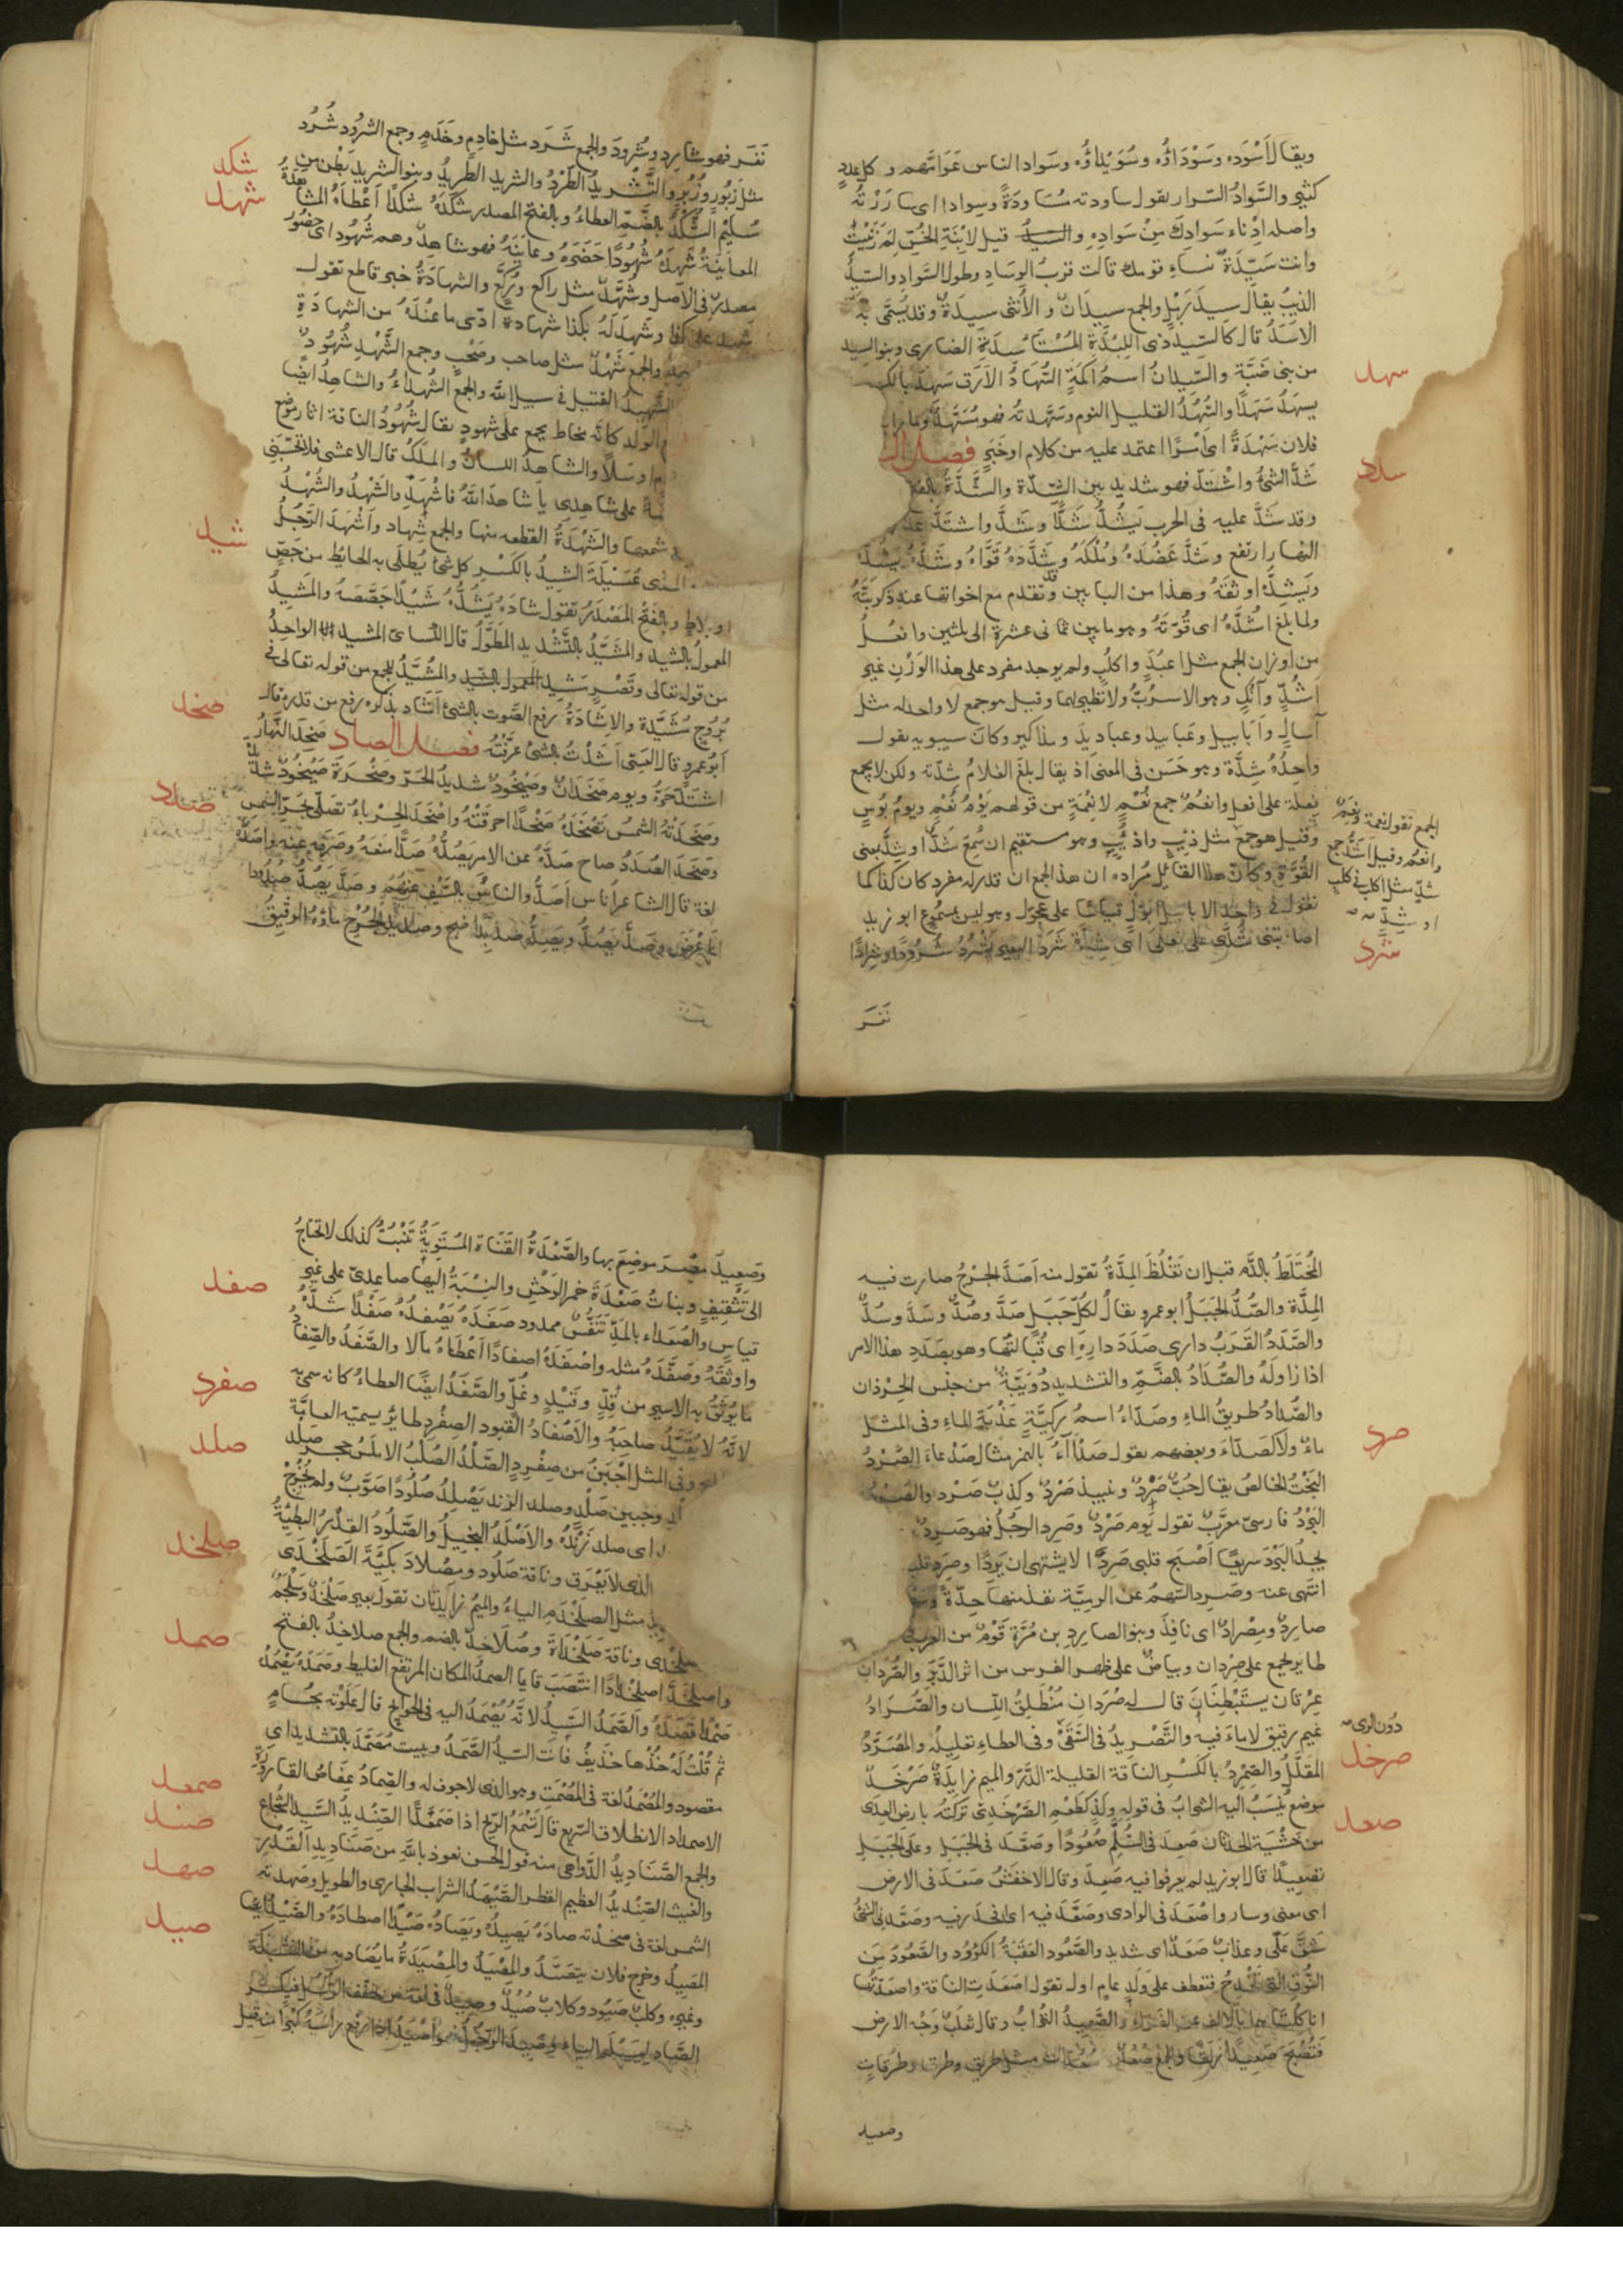 ويقال لأَسْوَدِه وسَوْدَاؤُه وسُوَيْدَاؤُه وسَواد الناس عَوَامُّهم وكل عددٍ
كثيرٍ والسَّوادُ السِّرار تقول ساودته مُسَاوَدَةً وسِوادا اى سارَرْتُه
واصله ادْناء سَوادِكَ مِنْ سَوادِهِ قيل لابْنَةِ الخُسِّ لِمَ زَنَيْتِ
وانت سَيِّدَةُ نساءِ قومك قالت قربُ الوِسَادِ وطول السِّوادِ والسِّيدُ
الذيبُ يقال سيدُ رَمْلٍ والجمع سِيدَانٌ والأُنثى سِيدَةٌ وقد يُسَمَّى به
الاَسَدُ قال كالسِّيدِ ذى اللِّبْدَةِ المُسْتَأسِدِ الضارى وبنو السِيد
من بنى ضَبَّة والسِّيدانُ اسمُ اَكَمَةٍ السُّهَادُ الاَرَق سَهِدَ بالكسر
سهد
يسهَدُ سَهَدًا والسُّهُدُ القليل النوم وسَهَّدتُه فهو مُسَهَّدٌ وما رايت من
فلان سَهْدَةً اى اَمْرًا اعتمد عليه من كلام او خَبَرٍ فصل
شَدَّ الشئُ واشْتَدَّ فهو شديد بين الشِدّة والشَّدَّةُ بالفتح
شدد
وقد شَدَّ عليه فى الحرب يَشُدُّ شَدًّا وشَدَّ واشتدَّ عَدَا
النهار ارتفع وشَدَّ عَضُدَهُ ومُلْكَهُ وشَدَّدَهُ قَوَّاهُ وشَدَّهُ يشُدُّه
ويَشِدُّه اوثقَهُ وهذا من البابين وقد تقدم مع اخواتها عند ذكر بَتَّهُ
ولما بلغ اشُدَّهُ اى قُوَّتَهُ وهو ما بين ثمانى عشرة الى ثلثين وافعُلُ
من اوزان الجمع مثل اعبُدٍ واكلُبٍ ولم يوجد مفرد على هذا الوَزْنِ غير
اَشُدٍّ وآنُكٍ وهو الاسرُبُّ ولا نظير لهما وقيل هو جمع لا واحد له مثل
آسالٍ واَبَابيل وعَبابيد وعباديدَ ومذاكير وكان سيبويه يقول
واحِدُهُ شِدَّة وهو حَسَن فى المعنى اذ يقال بلغَ الغلامُ شِدّته ولكن لا يجمع
فِعلة على افعل وانعُمٌ جمع نُعْمٍ لا نِعْمَةٍ من قولهم يَوْمُ نُعْمٍ ويومُ بُوسٍ
وقيل هو جمع مثل ذِيْبٍ واذؤُبٍ وهو مستقيم ان سُمِعَ شَدٌّ او شِدٌّ بمعنى
القُوَّةِ وكان هذا القائل مُراده ان هذا الجمع ان قدر له مفرد كان كذا كما
تقول فى واحد الابابيل اِبَّوْلٌ قياسًا على عِجَّوْل وهو ليس بمسموع ابو زيد
اصابتنى شُدَّى على فُعْلَى اى شِدَّة شَرَدَ البعير يَشْرُدُ شُرُودًا وشِرادًا
الجمع تقول نعمة ونِعَمٌ
وانعُمٌ وقيل اشُدُّ جمع
شَدٍّ مثل اكلب فى كلب
او شِدٍّ
شرد
نَفَرَ
نَفَرَ فهو شارِد وشَرُودٌ والجمع شَرَد مثل خادِمٍ وخَدَمٍ وجمع الشَّرُود شُرُد
مثل زَبُورٍ وزُبُرٍ والتَّشْرِيدُ الطَّرْدُ والشريد الطَّرِيدُ وبنو الشريد بَطْن من
شكد
سُلَيْمٍ الشُّكْدُ بالضَّمِّ العطاءُ وبالفتح المصدر شكَدَهُ شَكْدًا اَعْطاهُ المشاهدَةُ
شهد
المعاينَةُ شَهِدَهُ شُهُودًا حَضَرَهُ وعايَنَهُ فهو شاهِدٌ وهم شُهُود اى حضُور
مصدرٌ فى الاصل وشُهَّدٌ مثل راكع ورُكَّع والشهادَةُ خبر قاطع تقول
شهد على كذا وشَهِدَ لَهُ بكذا شهادة ادّى ما عنْدَهُ من الشهادَةِ
والجمع شَهْدٌ مثل صاحب وصَحْبٍ وجمع الشَّهْدِ شُهُودٌ
الشَّهِيدُ القتيل فى سبيل الله والجمع الشُّهداءُ والشاهِدُ ايضًا
الوَلَد كانَّه مخاط يجمع على شهودٍ يقال شُهُودُ الناقة اثار موضع
وسَلًا والشاهدُ اللسانُ والمَلَكُ قال الاعشى فلا تحْسَبَنِّى
على شاهِدِى يا شاهدَ اللهِ فاشْهَدِ والشَّهْدُ والشُّهْدُ
شمعها والشَّهْدَةُ القطعه منها والجمع شِهاد واَشْهَدَ الرَّجُلُ
شيد
عُسَيْلَةً الشِيدُ بالكَسْرِ كل شئ يُطلَى به الحايط من جَصٍّ
او بلاطٍ وبالفَتْحِ المَصْدَرُ تقول شادَهُ يَشِيدُهُ شَيْدًا جَصَّصَهُ والمَشِيدُ
المعمولُ بالشِيد والمُشَيَّدُ بالتَّشْديد المطوَّلُ قال الكسائىّ المشيد الواحِدُ
من قوله تعالى وقَصْرٍ مَشِيد والمُشَيَّدُ للجمع من قوله تعالى فى
بُرُوجٍ مُشَيَّدة والاِشادَةُ رفع الصَّوت بالشئ اَشَادَ بذكره رفع من قدره قال
اَبُوعمرو قال العَبْسى اَشَدْتُ بالشئ عَرَّفْتُه فصل الصاد صَخَدَ النَّهارُ
صخد
اشتَدَّ حَرُّهُ ويوم صَخَدانٌ وصَيْخُودٌ شديدُ الحَرّ وصَخْرَة صَيْخُودٌ شديدَة
وصَخَدَتْهُ الشمسُ تَصْخَدُهُ صَخْدًا احرقَتْهُ واصْخَدَ الحِرْباءُ تصَلّى بحَرّ الشمسِ
صدد
وصَخَدَ الصُرَدُ صاح صَدَّهُ عن الامر يَصُدُّهُ صَدًّا منعَهُ وصَرَفه عنه واصَدَّهُ
لغة قال الشاعر اُناس اَصَدُّوا الناسَ بالسَّيْفِ عَنْهُم وصَدَّ يَصُدُّ صُدُودًا
اعْرَضَ وصَدَّ يَصُدُّ ويَصِدُّ صَديدًا ضج وصديدُ الجُرْحِ ماؤه الرقيقُ
المُخْتَلَطُ بالدَّمِ قبل ان تَغْلُظَ المِدَّةُ تقول منه اَصَدَّ الجُرْحُ صارت فيه
المِدَّة والصُّدُّ الجَبَلُ ابوعمرو يقالُ لكلّ جَبَلٍ صَدٌّ وصُدٌّ وسَدٌّ وسُدٌّ
والصَّدَدُ القَرَبُ دارى صَدَدَ دارِهِ اى قُبَالَتُهَا وهو بصَدَدِ هذا الامر
اذا زاولَهُ والصُّدّادُ بالضَّمِّ والتشديد دُوَيبَّةٌ من جنس الجِرْذان
والصُّدّادُ طريقُ الماءِ وصَدّاءُ اسمُ رَكِيَّةٍ عَذْبَةِ الماءِ وفى المثل
ماءٌ ولا كَصَدّاءَ وبعضهم يقول صَدْاَآءُ بالهمز مثال صَدْعاءَ الصَّرْدُ
صرد
البَحْتُ الخالصُ يقال حُبٌّ صَرْدٌ ونبيذ صَرْدٌ وكذبٌ صَرْد والصَّرْدُ
البَرْدُ فارسىّ معرَّبٌ تقول يَوم صَرْدٌ وصَرِد الرجُلُ فهو صَرِدٌ
يجدُ البَرْدَ سريعًا اَصْبَحَ قلبى صَرِدَا لا يشتهى ان يَرِدَا وصَرِدَ قلبه
انتَهى عنه وصَرِد السَّهمُ عن الرميَّة نفذ منها حِدَّةً
صارِدٌ ومِصْرادٌ اى نافِذ وبنو الصارِدِ بن مُرَّة قَوْمٌ من العرب
طاير يجمع على صِرْدان وبياضٌ على ظهر الفرس من اثر الدَّبَر والصُّرَدانِ
عِرْقان يستَبْطِنَانِ قال له صُرَدَانِ مُنْطَلِقُ اللِّسان والصُّرّادُ
غيم رقيق لا ماءَ فيه والتَّصْرِيدُ فى السَّقْىِ وفى العطاءِ تقليلُه والمُصَرَّدُ
دُون الرى
المقَلَّلُ والصِّمْرِدُ بالكَسْر الناقة القليلة الدَّرّ والميم زايدَةٌ صَرْخَدٌ
صرخد
موضع يُنْسَبُ اليه الشرابُ فى قوله ولَذٍّ كطَعْمِ الصَّرْخَدِىِّ تَرَكْتُه بارض العِدَى
من خَشْيَة الحدثان صَعِدَ فى السُّلَّم صُعُودًا وصَعَّدَ فى الجَبَلِ وعَلَى الجَبَلِ
صعد
تصعيدًا قال ابوزيد لم يعرفوا فيه صَعِدَ وقال الاخفش صَعَّدَ فى الارض
اى مضى وسار واصْعَدَ فى الوادى وصَعَّدَ فيه اى انحدر فيه وصَعَّدَنِى الشئُ
شَقَّ عَلَىَّ وعذابٌ صَعَدٌ اى شديد والصَّعُود العَقَبَةُ الكَؤُود والصَّعُودُ من
النُّوق التى تَخْدِجُ فتعطف على وَلَدٍ عام اول تقول اصعَدَت الناقة واصعَدْتُهَا
انا كلتاهما بالالف عن الفرّاء والصَّعِيدُ التُّرابُ وقال ثعلبٌ وَجْه الارض
فَتُصْبِحَ صَعِيدًا زَلَقًا والجمع صُعُدٌ وصُعُدات مثل طريق وطرق وطُرُقاتٍ
وصعيد
وصَعِيدُ مِصْرَ موضِعٌ بها والصَّعْدَةُ القَنَاة المُسْتَوِيَةُ تَنْبُتُ كذلك لا تحتاجُ
الى تَثْقِيفٍ وبناتُ صَعْدَةَ حُمر الوَحْشِ والنِسْبَةُ اليها صاعِدِىّ على غير
صفد
قياسٍ والصُّعَداء بالمَدِّ تَنَفُّسٌ ممدود صَفَدَهُ يَصْفِدُهُ صَفْدًا شَدَّهُ
واوثَقَهُ وصَفَّدَهُ مثله واصْفَدَهُ اصفادًا اَعْطَاهُ مالا والصَّفَدُ والصِّفادُ
ما يُوثَقُ به الاسير من قِدٍّ وقَيْدٍ وغُلٍّ والصَّفَدُ ايضًا العطاءُ كانه سمىّ به
صفرد
لانَّهُ لا يُقَيِّدُ صاحبَهُ والاَصْفادُ القُيود الصِفْرِد طايرٌ يسميه العامّة
وفى المثل اَجْبَنُ من صِفْرِدٍ الصَّلْدُ الصُلْبُ الاملسُ حجر صَلد
صلد
وجبين صَلْد وصلد الزند يَصْلِدُ صُلُودًا صَوَّتَ ولم يُخْرِجْ
اى صلد زَنْدُهُ والاَصْلَدُ البخيلُ والصَّلُودُ القِدْرُ البطيئةُ
صلخد
الذى لا يَعْرَق وناقة صَلُود ومِصْلادٌ بَكِيَّة الصَّلَخْدَى
مثل الصلَخْدَمِ الياءُ والميمُ زايدَتان تقول بعير صَلَخْدٌ وصَلْخَمٌ
صلخدى وناقة صَلَخْدَاةٌ وصُلَاخدٌ بالضم والجمع صلاخِدُ بالفتح
صمد
واصلخَدَّ اصلخدادًا انتَصَبَ قايما الصمدُ المكان المرتفع الغليظ وصَمَدَهُ يَصْمُدُ
صَمْدًا قصَدَهُ والصَّمَدُ السَّيِّدُ لانَّه يُصْمَدُ اليه فى الحوايج قال عَلَوْتُه بحُسامٍ
ثم قُلْتُ لَهُ خُذْها حُذَيفُ فاَنت السيّدُ الصَّمَدُ وبيت مُصَمَّدٌ بالتشديد اى
مقصود والمُصْمَدُ لغة فى المُصْمَتِ وهو الذى لا جوف له والصِمادُ عِفاصُ القارورَةِ
صمعد
الاصمعداد الانطلاق السريع قال تَسْمَعُ الريح اذا صَمَعَدَّا الصِّنْدِيدُ السَّيِّدُ الشُجاعُ
صند
والجمع الصَّنَادِيدُ الدَّواهى منه قول الحسن نعوذ بالله من صَنَادِيدِ القَدَرِ
والغيث الصِّنْدِيدُ العظيم القطر الصَّيْهَدُ السَّراب الجارى والطويل وصهدته
صهد
الشمسُ لغة فى صَخَدَتْه صادَهُ يَصِيدُهُ ويَصَادُهُ صَيْدًا اصطادَهُ والصَّيْدُ ايضا
صيد
المَصِيدُ وخرج فلان يتصَيَّدُ والمِصْيَدُ والمِصْيَدَةُ ما يُصَاد به
وغيره وكلبٌ صَيُود وكلابٌ صُيُدٌ وصِيدٌ فى لغة من خفّف الرُّسُل فيكسر
الصّاد لتَسْلَم الياءُ